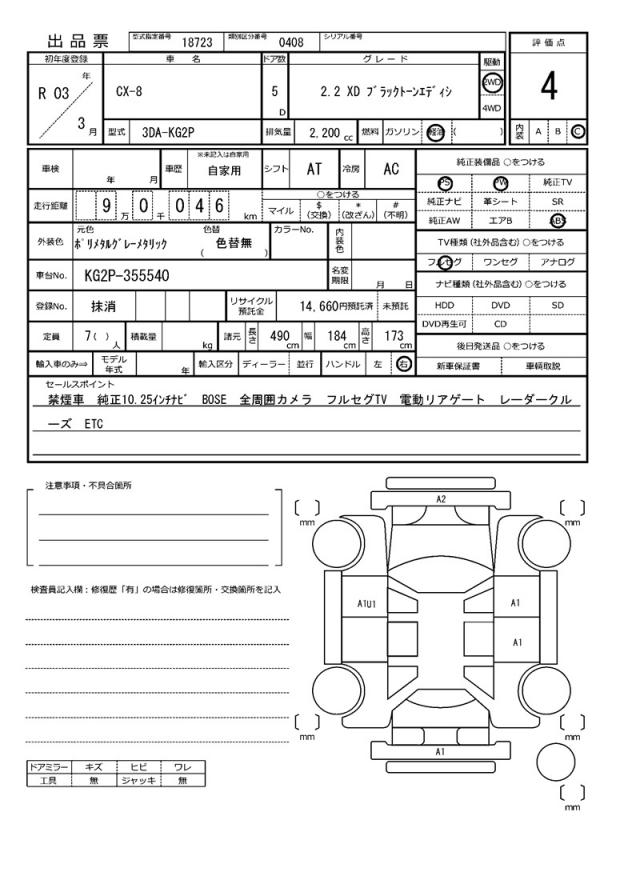 出品票 型式指定番号 18723 類別区分番号 0408 シリアル番号
初年度登録 車 名 ドア数 グレード 駆動 評価点
R 03 年 3 月 CX-8 5 D 2.2 XD ブラックトーンエディシ 2WD 4WD 4
型式 3DA-KG2P 排気量 2,200 cc 燃料 ガソリン 軽油 ( ) 内装 A B C
車検 年 月 車歴 ※未記入は自家用 自家用 シフト AT 冷房 AC
走行距離 9 万 0 千 0 4 6 km ○をつける
マイル $ (交換) * (改ざん) # (不明)
外装色 元色 ポリメタルグレーメタリック 色替 色替無 ( ) カラーNo. 内装色
車台No. KG2P-355540 名変期限 月 日
登録No. 抹消 リサイクル預託金 14,660円預託済 未預託
定員 7( ) 人 積載量 kg 諸元 長さ 490 cm 幅 184 cm 高さ 173 cm
輸入車のみ⇒ モデル年式 年 輸入区分 ディーラー 並行 ハンドル 左 右
純正装備品 ○をつける
PS PW 純正TV
純正ナビ 革シート SR
純正AW エアB ABS
TV種類 (社外品含む) ○をつける
フルセグ ワンセグ アナログ
ナビ種類 (社外品含む) ○をつける
HDD DVD SD
DVD再生可 CD
後日発送品 ○をつける
新車保証書 車輌取説
セールスポイント
禁煙車 純正10.25インチナビ BOSE 全周囲カメラ フルセグTV 電動リアゲート レーダークル
ーズ ETC
注意事項・不具合箇所
検査員記入欄：修復歴「有」の場合は修復箇所・交換箇所を記入
ドアミラー キズ ヒビ ワレ
工具 無 ジャッキ 無
A2
mm mm
A1U1 A1
A1
mm mm
A1
mm